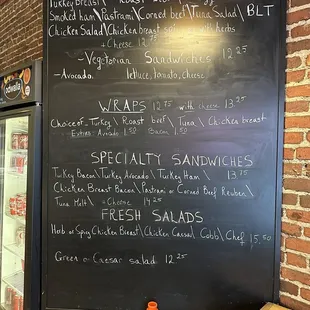 Turkey Breast \ Roast
Smoked ham \ Pastrami \ Corned beef \ Tuna Salad \ BLT
Chicken Salad \ Chicken Breast with herbs
+ Cheese 12.75
- Vegetarian Sandwiches 12.25
- Avocado. lettuce, tomato, cheese.
WRAPS 12.75 with cheese 13.25
Choice of. Turkey \ Roast beef \ Tuna \ Chicken breast
Extras: Avocado 1.50 Bacon 1.50
SPECIALTY SANDWICHES
Turkey Bacon \ Turkey Avocado \ Turkey Ham \ 13.75
Chicken Breast Bacon \ Pastrami or Corned Beef Reuben \
Tuna Melt \ + Cheese 14.25
FRESH SALADS
Herb or Spicy Chicken Breast \ Chicken Caesar \ Cobb \ Chef 15.50
Green or Caesar salad 12.25